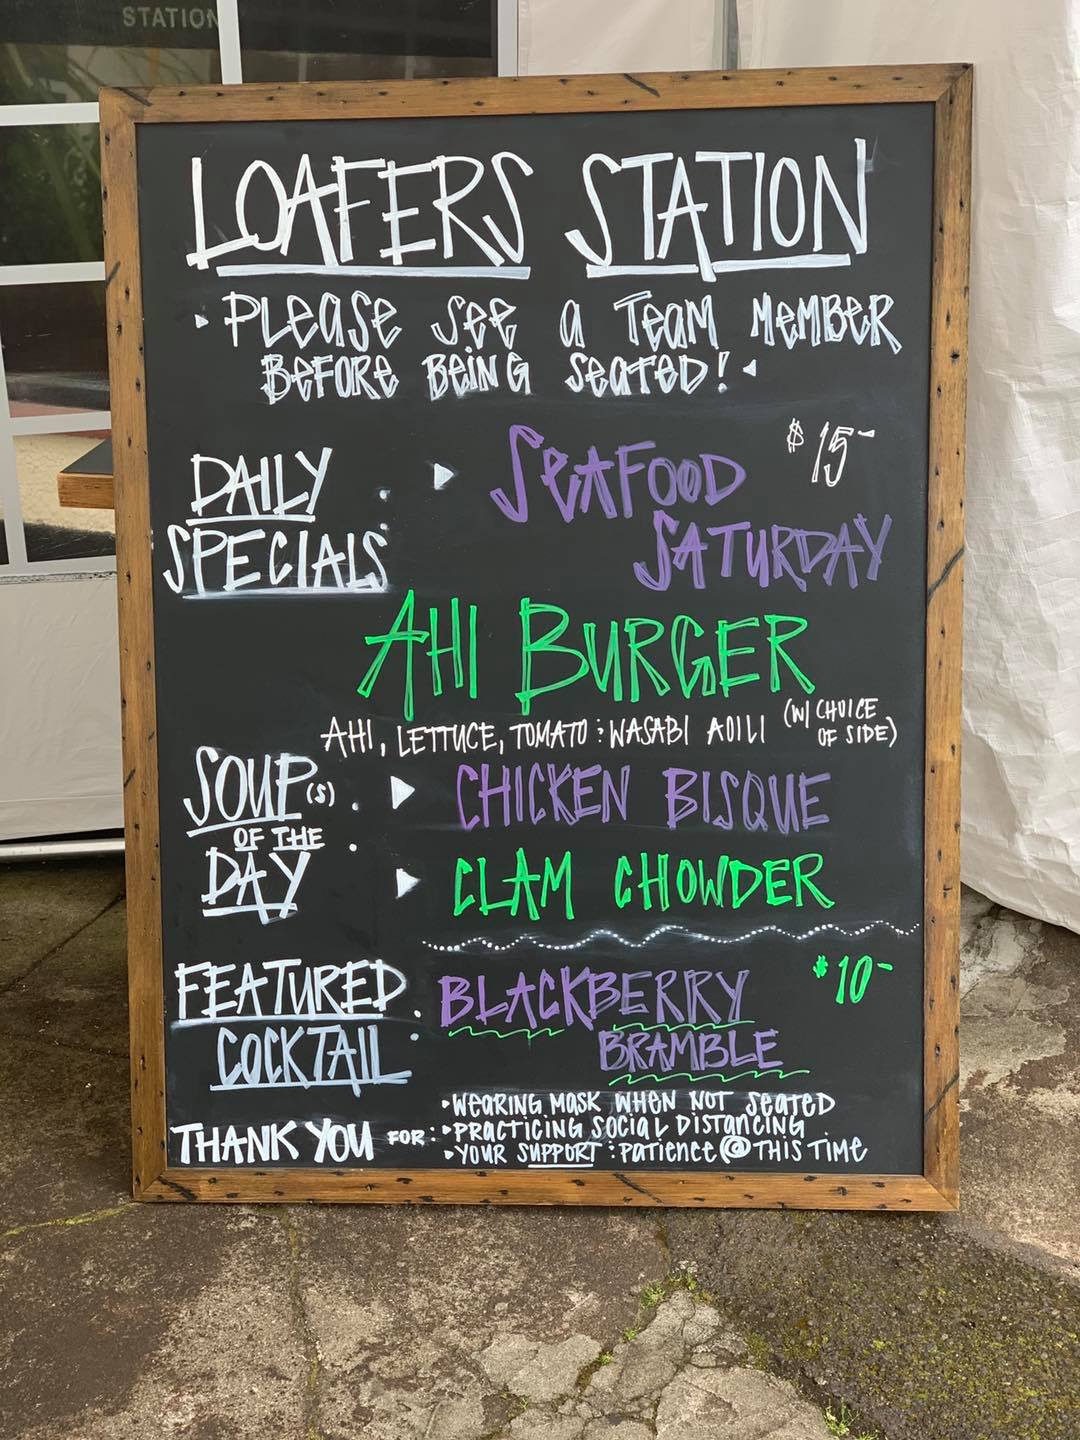 STATION
LOAFERS STATION
• PLEASE SEE A TEAM MEMBER
BEFORE BEING SEATED! •
DAILY
SPECIALS : ▸ SEAFOOD $15-
SATURDAY
AHI BURGER
AHI, LETTUCE, TOMATO : WASABI AOILI (W/ CHOICE
OF SIDE)
SOUP(S) : ▸ CHICKEN BISQUE
OF THE
DAY ▸ CLAM CHOWDER
FEATURED : BLACKBERRY $10-
COCKTAIL BRAMBLE
THANK YOU FOR: • WEARING MASK WHEN NOT SEATED
• PRACTICING SOCIAL DISTANCING
• YOUR SUPPORT : PATIENCE @ THIS TIME